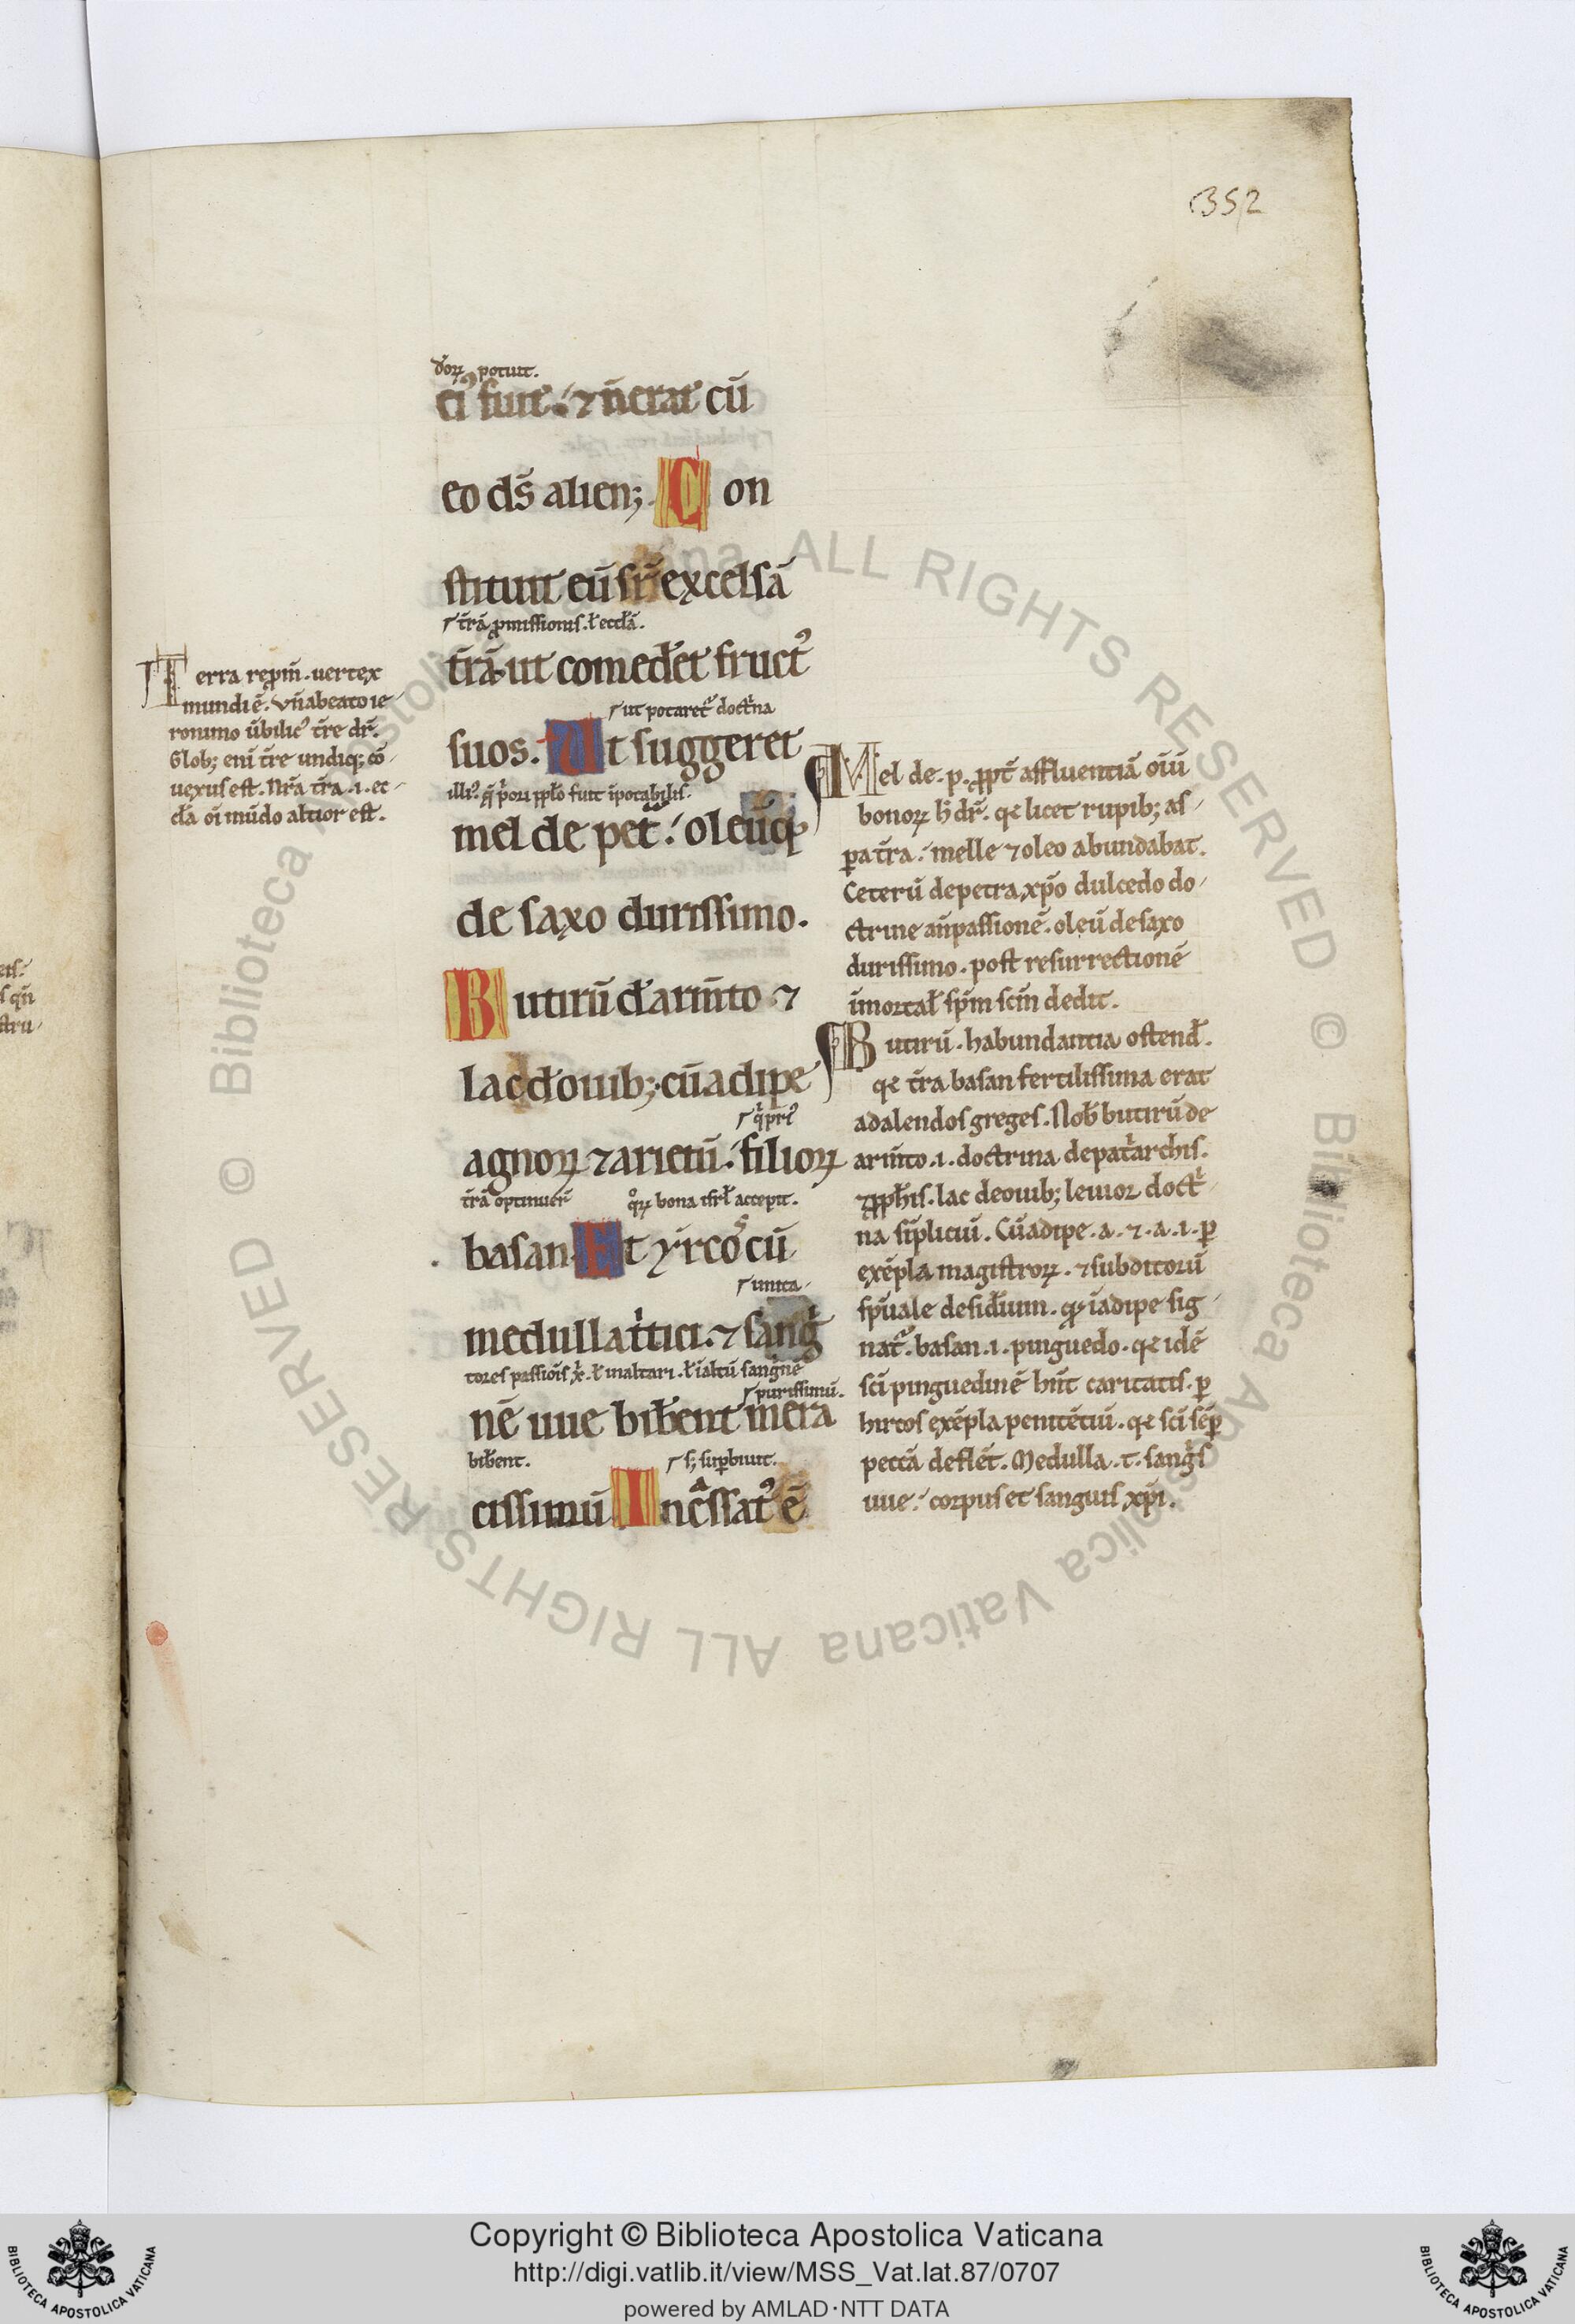 352
dor̄ꝝ potuit.
ei᷒ fuit. ⁊ n̄ erat cū
eo dn̄s alien᷒; Con
stituit eū sr̄ excelsā
t̄rā ꝓmissionis. ł eccl̄ā.
t̄rā. ut comed̄et fruct᷒
ut potaret᷑ doctͥna
suos. Ut suggeret
illi᷒. q̄ pͥori pp̄lo fuit īpotabilis.
mel de pet̄. oleūq᷒
de saxo durissimo.
Butirū d̄ arm̄to ⁊
lac d̄ ouib; cū adipe
qͥ pri᷒
agnoꝝ ⁊ arietū. filioꝝ
t̄rā optinuer̄ qͦꝝ bona isr̄l accepit.
basan. Et yrcos cū
unita
medulla tͥtici. ⁊ sangͥ
tores passiōis xͥ. ł in altari. ł ī altū sangͥnē
purissimū.
nē uue bib̄ent mera
bib̄ent. s; sup̄biuit.
cissimū Incᷓssat᷒ ē
Terra rep̄m̄. uertex
mundi ē. Vn̄ a beato ie
ronimo ūbilic᷒ t̄re dr̄.
Glob; eni t̄re undiq; cō
uexus est. Nr̄a t̄ra .i. ec
cl̄a oī mūdo altior est.
Mel de .p. ꝓpt̄ affluentiā oīū
bonoꝝ h̄ dr̄. qꝛ licet rupib; as
ꝑa t̄ra. melle ⁊ oleo abundabat.
Ceterū de petra xp̄o dulcedo do
ctrine an̄ passionē. oleū de saxo
durissimo. post resurrectionē
īmortal̄ sp̄m sc̄m dedit.
Butirū. habundantia ostend̄.
qꝛ t̄ra basan fertilissima erat
ad alendos greges. Nob̄ butirū de
arm̄to .i. doctrina de patͥarchis.
⁊ ꝓph̄is. lac de ouib; leuior doctͥ
na sīpliciū. Cū adipe .a. ⁊ .a. i. ꝑ
exēpla magistroꝝ. ⁊ subditorū
sp̄uale desid̄ium. qđ ī adipe sig
nat᷑. basan .i. pinguedo. qꝛ idē
sc̄i pinguedinē hn̄t caritatis. ꝑ
hircos exēpla penitētiū. qꝛ sc̄i sēꝑ
peccā deflēt. Medulla .t. sangͥs
uue. corpus et sanguis xp̄i.
Copyright © Biblioteca Apostolica Vaticana
http://digi.vatlib.it/view/MSS_Vat.lat.87/0707
powered by AMLAD·NTT DATA
BIBLIOTECA APOSTOLICA VATICANA
BIBLIOTECA APOSTOLICA VATICANA
© Biblioteca Apostolica Vaticana ALL RIGHTS RESERVED © Biblioteca Apostolica Vaticana ALL RIGHTS RESERVED